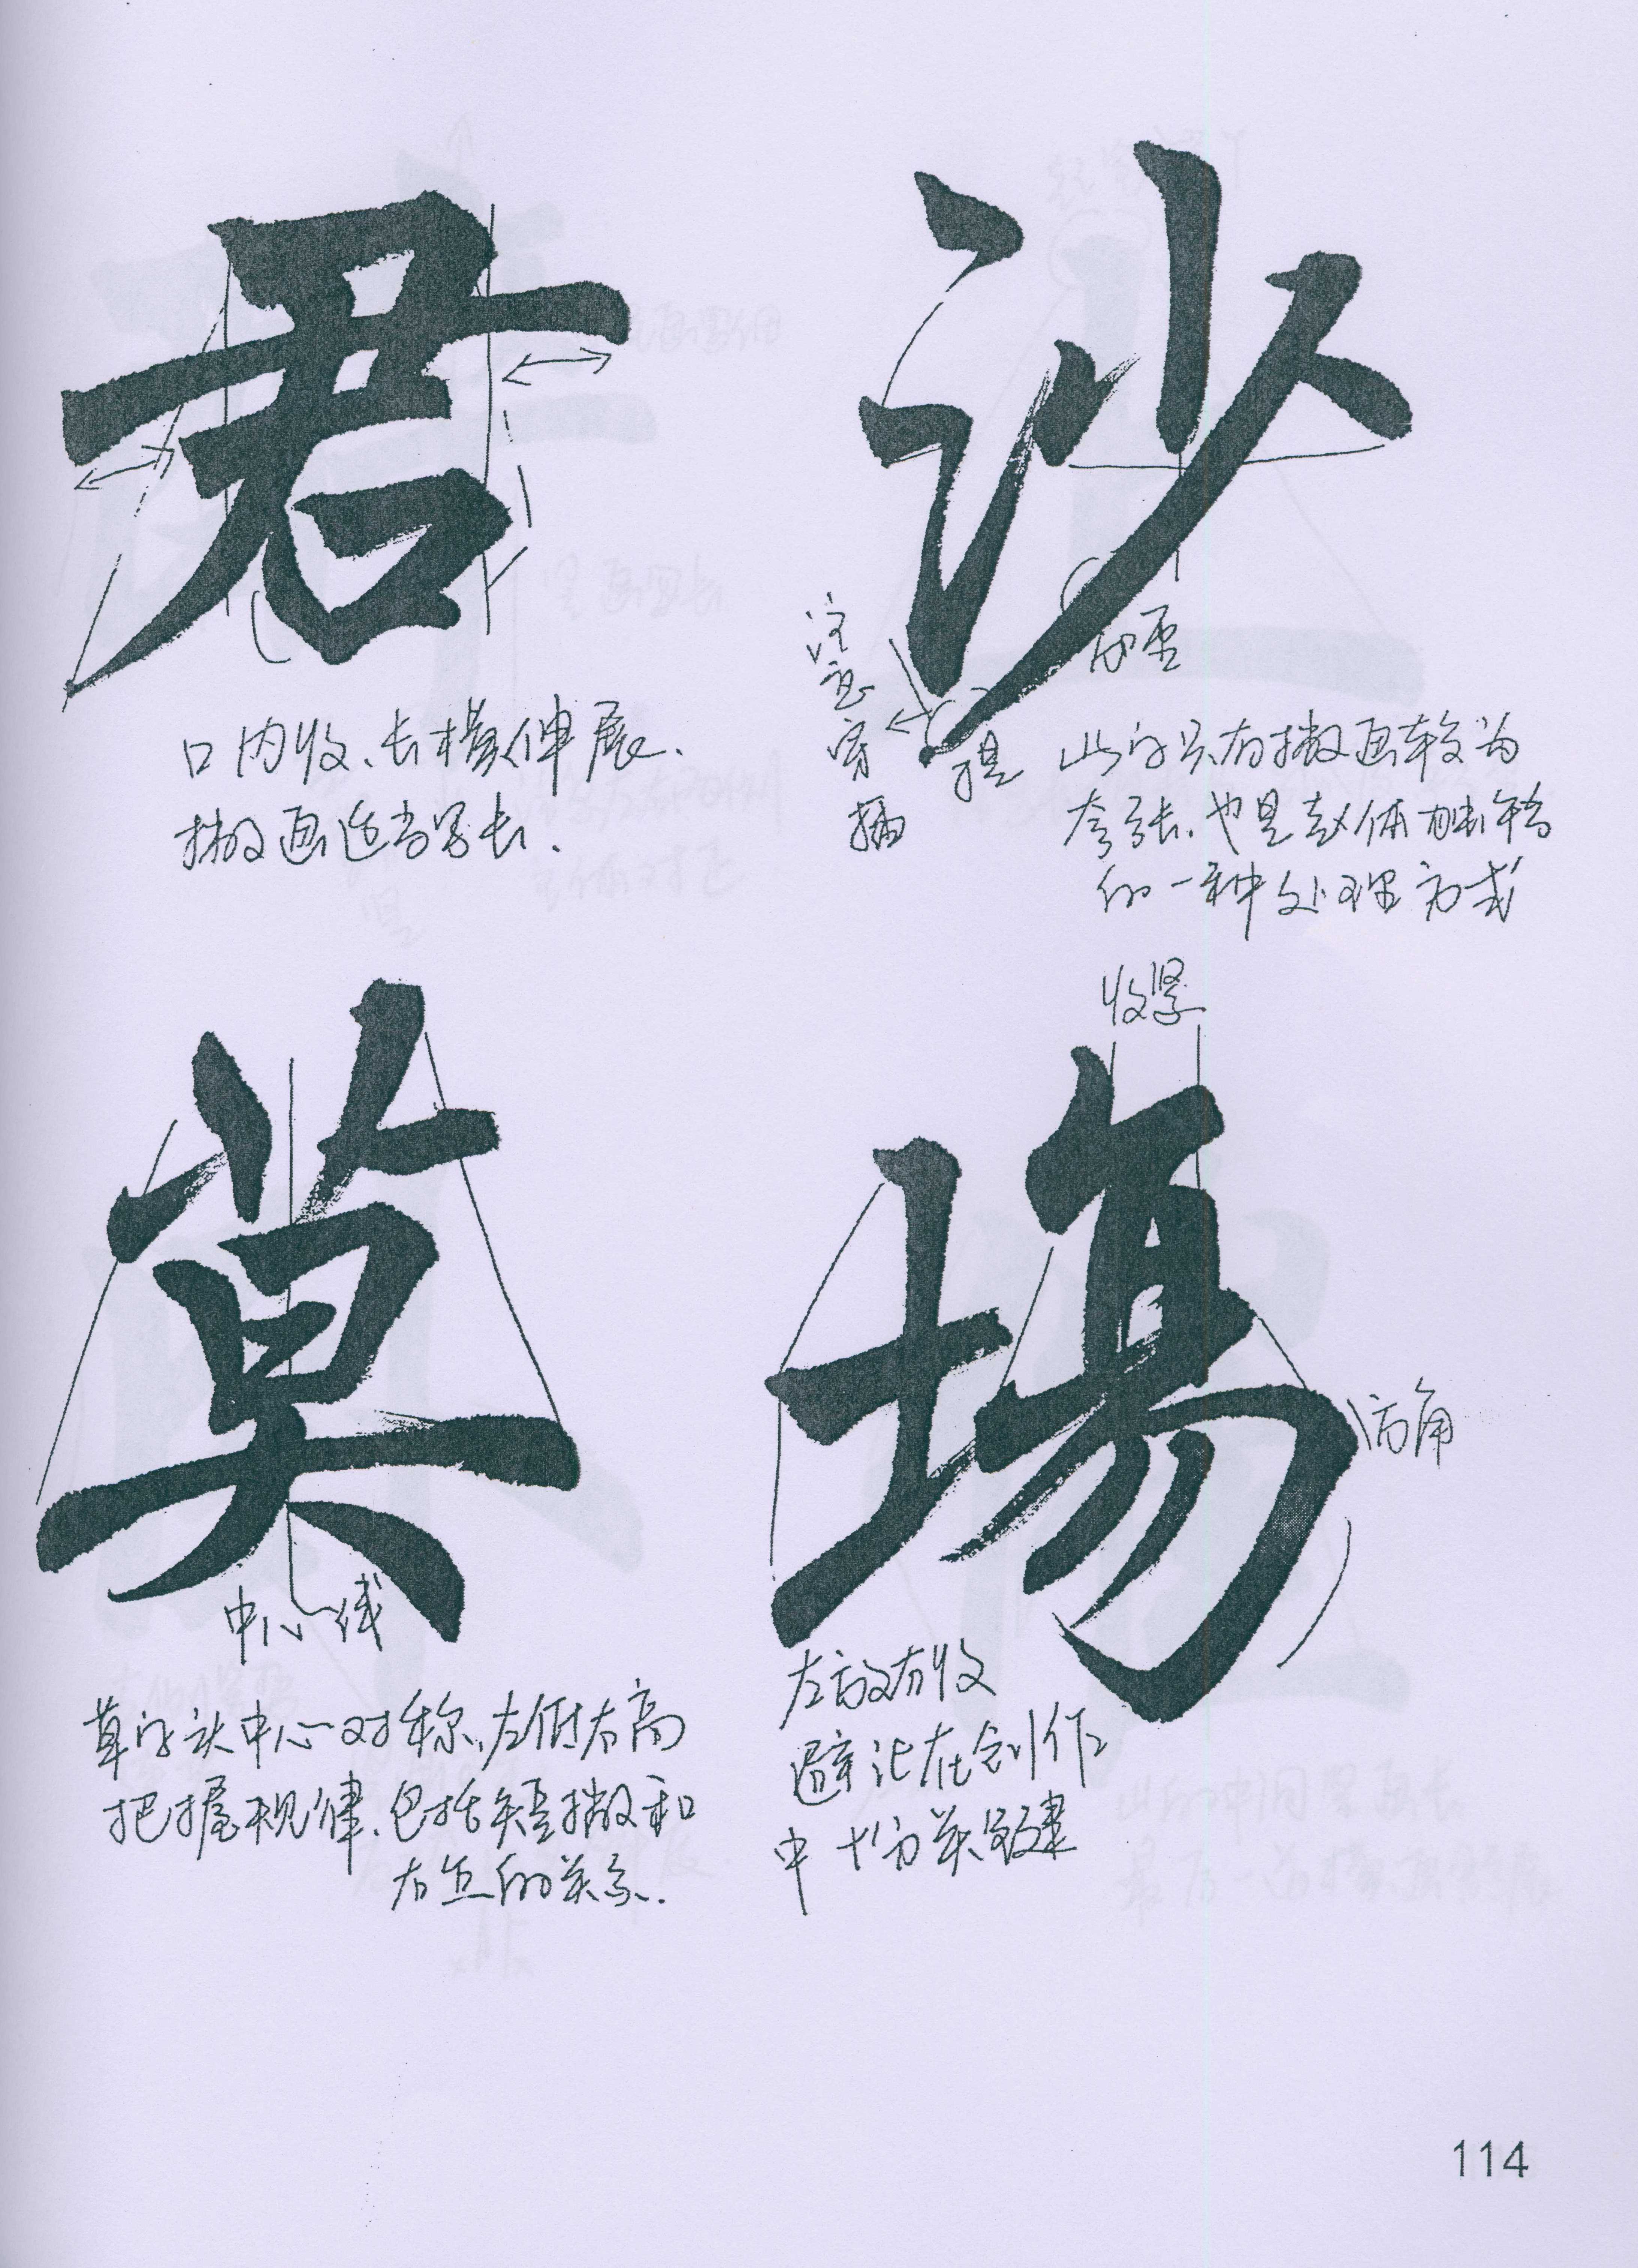 君
口内收、长横伸展.
撇画适当写长.
沙
注意穿插
加重
提
此字只有撇画较为
夸张.也是赵体
的一种处理方式
莫
中心线
草字头中心对称,左低右高
把握规律.包括短撇和
右点的关系.
場
收紧
方角
左放右收
避让在创作
中十分关键
114